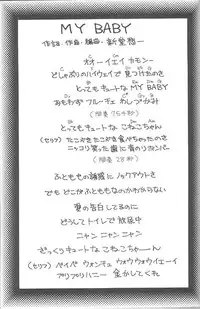 MY BABY
作詞・作曲・編曲・新堂敦士
オオーイエイ カモン〜
どしゃぶりのハイウェイで 見つけたのさ
とってもキュートな MY BABY
おもわず フルーチェ わしづかみ
(間奏 754秒)
とってもキュートな こねこちゃん
(セリフ) たこやきたこやき食べちゃったのさ
ニッコリ笑った歯に青のりボンバー
(間奏 28秒)
ふとももの誘惑に ノックアウトさ
でも どこがふともものなのかわからない
愛の告白してるのに
どうして トイレで 放尿中
ニャン ニャン ニャン
ざっくりキュートな こねこちゃーん
(セリフ) ベイベ ウォンチュ ウォウウォウイェーイ
アリアリハニー 金かしてくれ